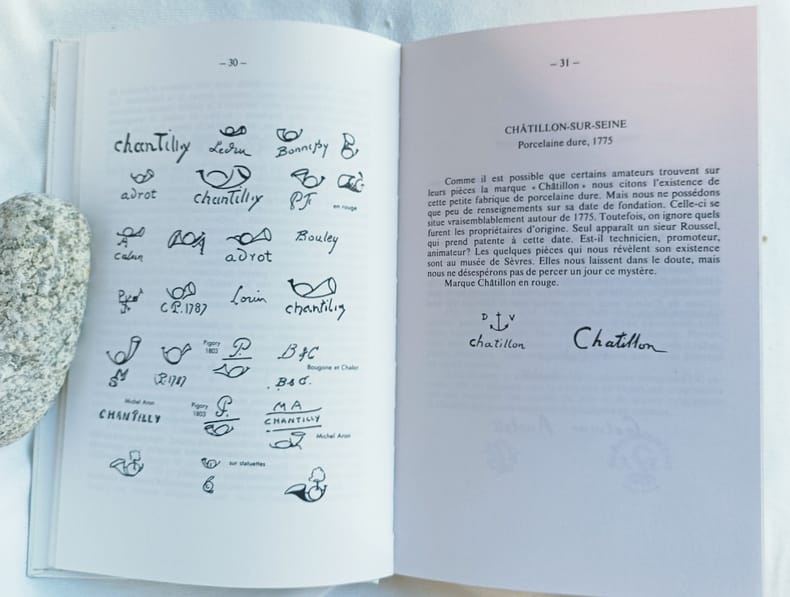 – 30 –
chantilly Ledru Bonnefoy
adrot chantilly P.F. en rouge
A adrot Bouley
calun
P C.P. 1787 Lorin chantilly
Pigory 1803 P. B&C
Bougone et Chalot
M S C.P. 1787 B&C.
Michel Aron Pigory 1803 P. MA
CHANTILLY CHANTILLY
Michel Aron
sur statuettes
– 31 –
CHÂTILLON-SUR-SEINE
Porcelaine dure, 1775
Comme il est possible que certains amateurs trouvent sur
leurs pièces la marque « Châtillon » nous citons l'existence de
cette petite fabrique de porcelaine dure. Mais nous ne possédons
que peu de renseignements sur sa date de fondation. Celle-ci se
situe vraisemblablement autour de 1775. Toutefois, on ignore quels
furent les propriétaires d'origine. Seul apparaît un sieur Roussel,
qui prend patente à cette date. Est-il technicien, promoteur,
animateur? Les quelques pièces qui nous révèlent son existence
sont au musée de Sèvres. Elles nous laissent dans le doute, mais
nous ne désespérons pas de percer un jour ce mystère.
Marque Châtillon en rouge.
D V
chatillon Chatillon